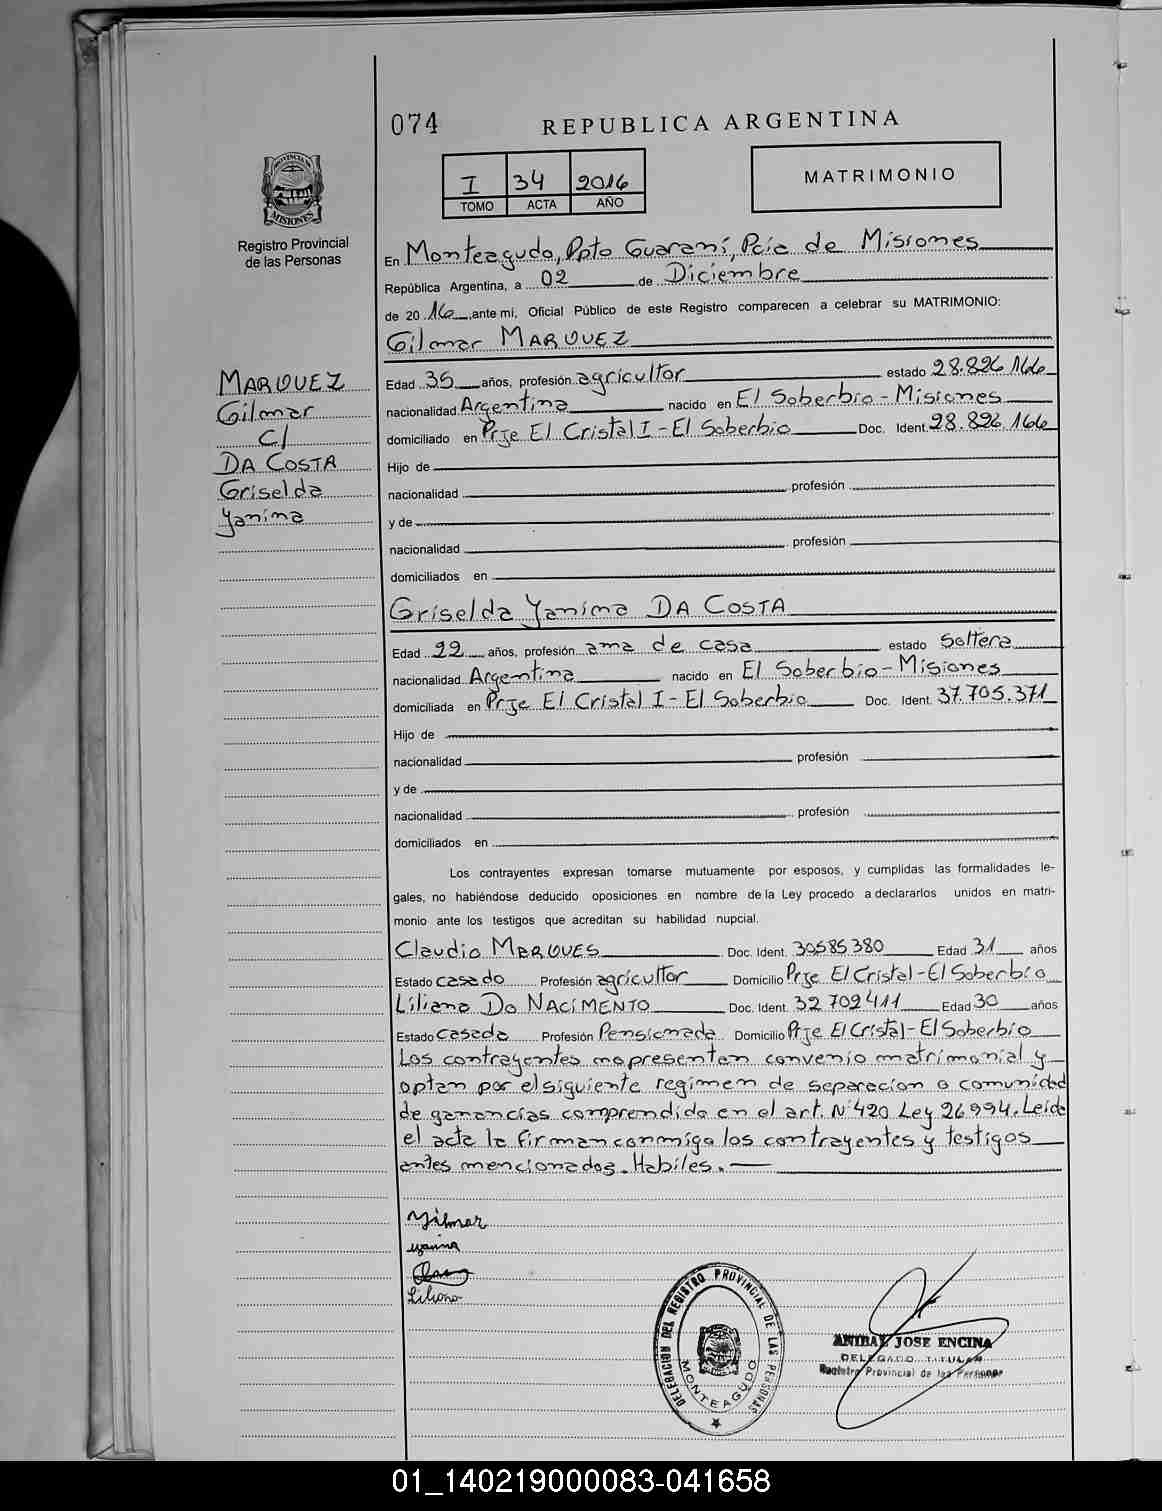 074
REPUBLICA ARGENTINA
I 34 2016
TOMO ACTA AÑO
MATRIMONIO
PROVINCIA DE MISIONES
Registro Provincial
de las Personas
En Monteagudo, Dpto Guaraní, Pcia de Misiones
República Argentina, a 02 de Diciembre
de 2016, ante mí, Oficial Público de este Registro comparecen a celebrar su MATRIMONIO:
Gilmar MARQUEZ
MARQUEZ
Gilmar
c/
DA COSTA
Griselda
Yanina
Edad 35 años, profesión agricultor estado 28.826.166
nacionalidad Argentina nacido en El Soberbio - Misiones
domiciliado en Prje El Cristal I - El Soberbio Doc. Ident. 28.826.166
Hijo de
nacionalidad profesión
y de
nacionalidad profesión
domiciliados en
Griselda Yanina DA COSTA
Edad 22 años, profesión ama de casa estado Soltera
nacionalidad Argentina nacido en El Soberbio - Misiones
domiciliada en Prje El Cristal I - El Soberbio Doc. Ident. 37.705.371
Hijo de
nacionalidad profesión
y de
nacionalidad profesión
domiciliados en
Los contrayentes expresan tomarse mutuamente por esposos, y cumplidas las formalidades le-
gales, no habiéndose deducido oposiciones en nombre de la Ley procedo a declararlos unidos en matri-
monio ante los testigos que acreditan su habilidad nupcial.
Claudio MARQUES Doc. Ident. 30585380 Edad 31 años
Estado casado Profesión agricultor Domicilio Prje El Cristal - El Soberbio
Liliana DO NACIMENTO Doc. Ident. 32 702411 Edad 30 años
Estado Casada Profesión Pensionada Domicilio Prje El Cristal - El Soberbio
Los contrayentes no presentan convenio matrimonial y
optan por el siguiente regimen de separacion o comunidad
de ganancias comprendido en el art. N°420 Ley 26994. Leida
el acta la firman conmigo los contrayentes y testigos
antes mencionados. Habiles. —
Gilmar
yanina
Liliana
DELEGACION DEL REGISTRO PROVINCIAL DE LAS PERSONAS
MONTEAGUDO
ANIBAL JOSE ENCINA
DELEGADO TITULAR
Registro Provincial de las Personas
01_140219000083-041658